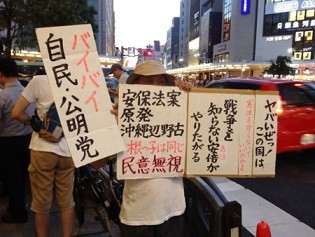 バイバイ
自民・公明党
安保法案
原発
沖縄辺野古
根っ子は同じ
民意無視
戦争を
知らない安倍が
やりたがる
ヤバいぜっ!
この国は